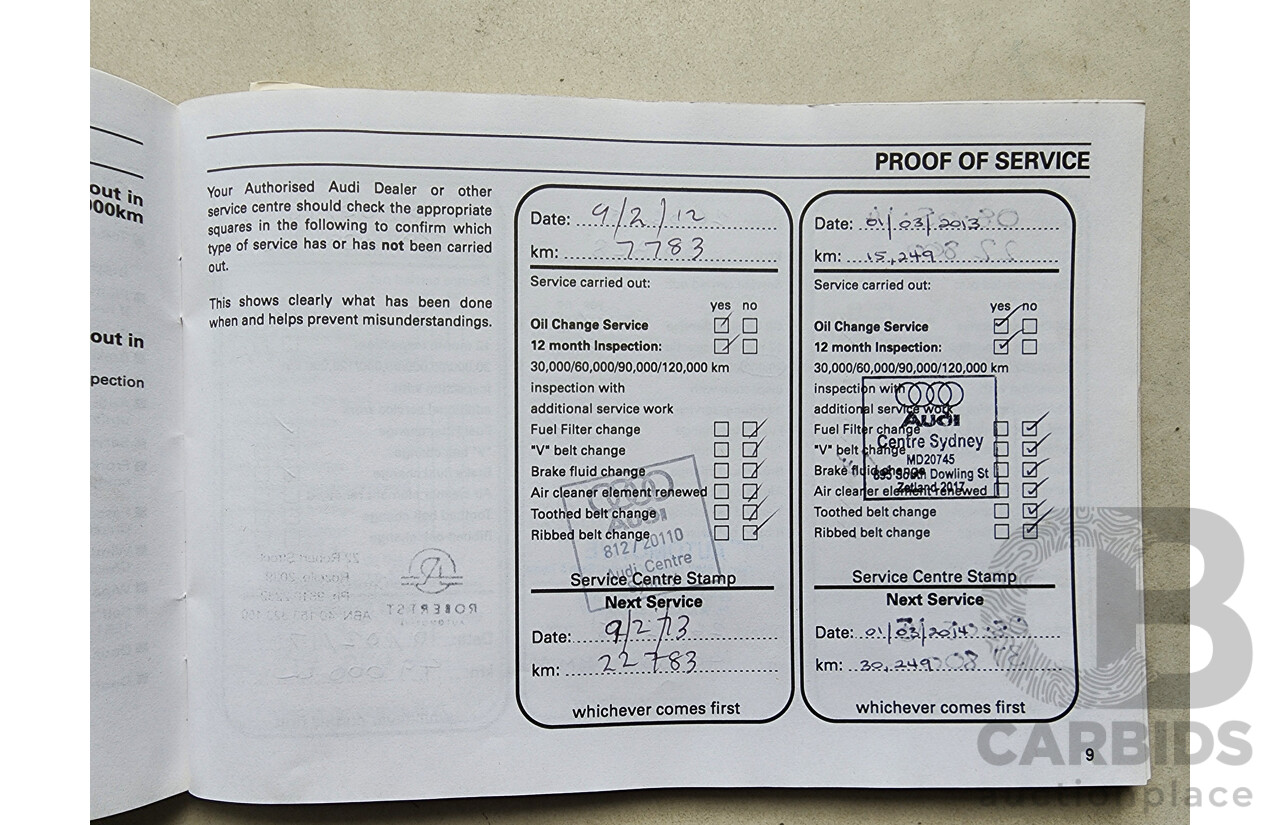 out in
000km
out in
pection
PROOF OF SERVICE
Your Authorised Audi Dealer or other
service centre should check the appropriate
squares in the following to confirm which
type of service has or has not been carried
out.
This shows clearly what has been done
when and helps prevent misunderstandings.
Date: 9/2/12
km: 7783
Service carried out:
yes no
Oil Change Service
12 month Inspection:
30,000/60,000/90,000/120,000 km
inspection with
additional service work
Fuel Filter change
"V" belt change
Brake fluid change
Air cleaner element renewed
Toothed belt change
Ribbed belt change
AUDI
812 / 20110
Audi Centre
Service Centre Stamp
Next Service
Date: 9/2/13
km: 22783
whichever comes first
Date: 01/03/2013
km: 15,249
Service carried out:
yes no
Oil Change Service
12 month Inspection:
30,000/60,000/90,000/120,000 km
inspection with
additional service work
Fuel Filter change
"V" belt change
Brake fluid change
Air cleaner element renewed
Toothed belt change
Ribbed belt change
AUDI
Centre Sydney
MD20745
895 South Dowling St
Zetland 2017
Service Centre Stamp
Next Service
Date: 01/03/2014
km: 30,249
whichever comes first
9
CARBIDS
auctionplace